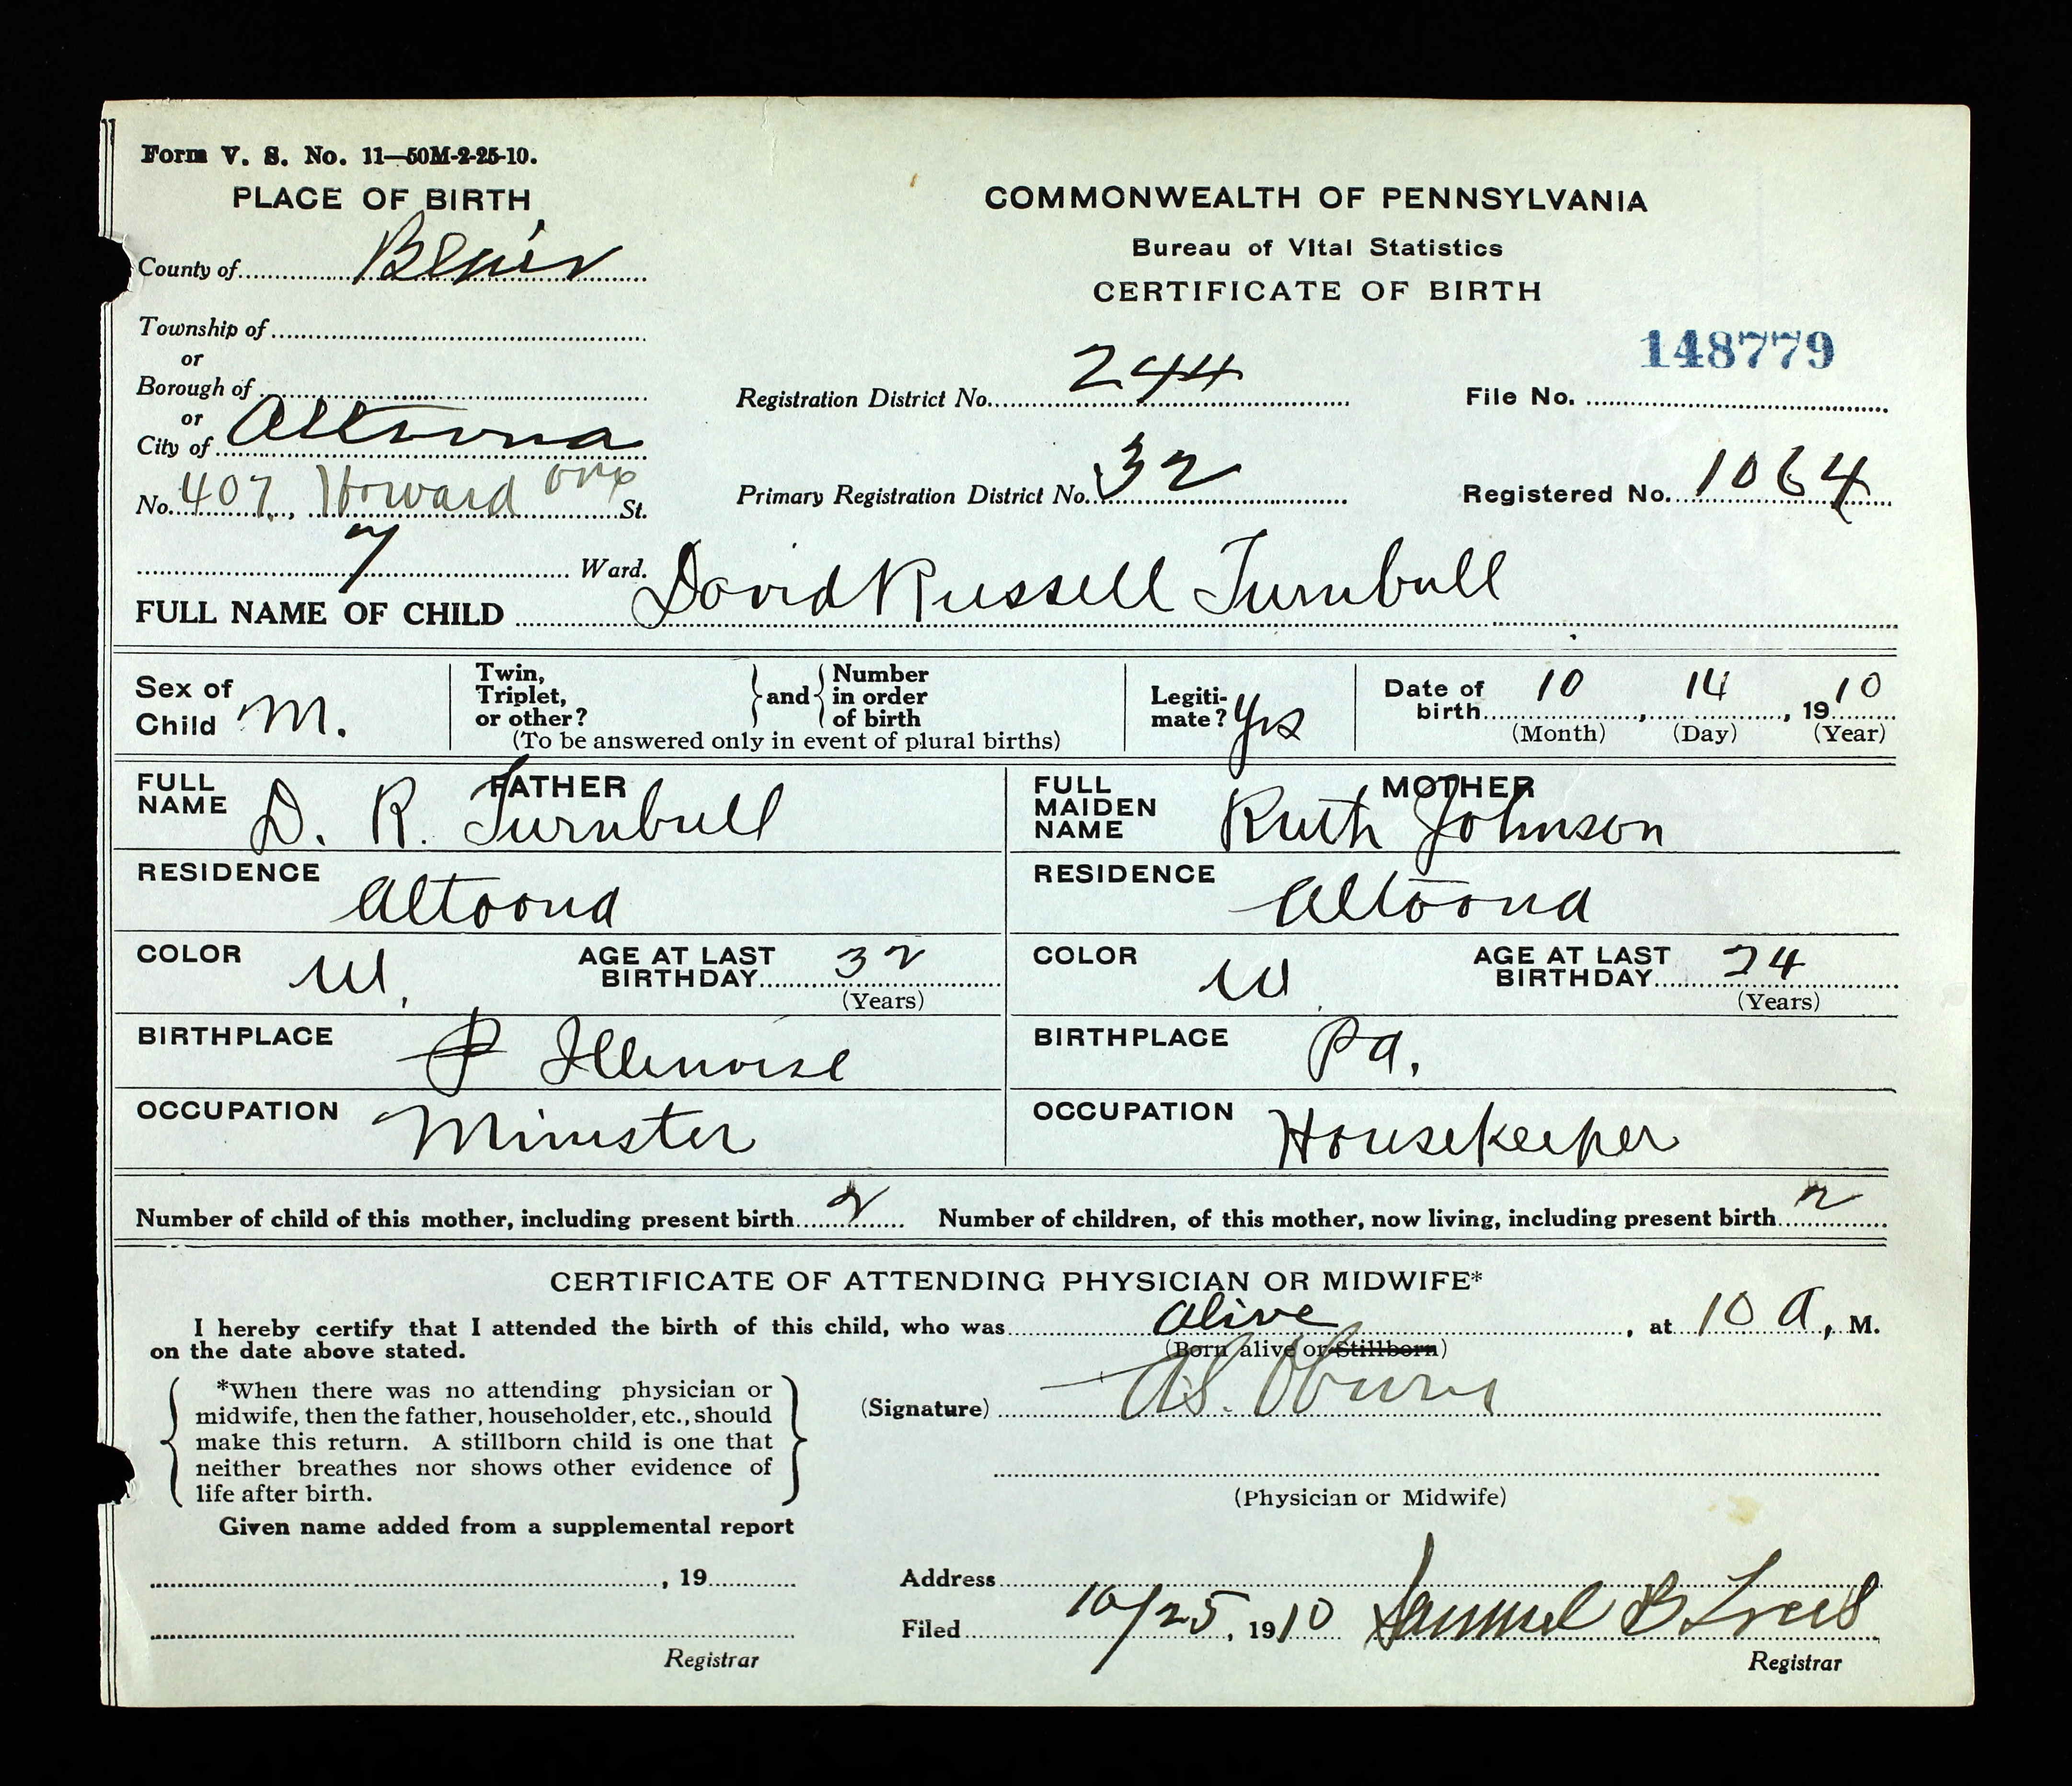 Form V. S. No. 11—50M-2-25-10.
PLACE OF BIRTH
COMMONWEALTH OF PENNSYLVANIA
Bureau of Vital Statistics
CERTIFICATE OF BIRTH
County of Blair
Township of
or
Borough of
or
City of Altoona
No. 407, Howard ave St.
7 Ward.
148779
Registration District No. 244
File No.
Primary Registration District No. 32
Registered No. 1064
FULL NAME OF CHILD David Russell Turnbull
Sex of Child M.
Twin, Triplet, or other? and Number in order of birth
(To be answered only in event of plural births)
Legiti-mate? Yes
Date of birth 10, 14, 1910
(Month) (Day) (Year)
FATHER
FULL NAME D. R. Turnbull
MOTHER
FULL MAIDEN NAME Ruth Johnson
RESIDENCE Altoona
RESIDENCE Altoona
COLOR W. AGE AT LAST BIRTHDAY 32 (Years)
COLOR W. AGE AT LAST BIRTHDAY 24 (Years)
BIRTHPLACE Illenoise
BIRTHPLACE Pa.
OCCUPATION Minister
OCCUPATION Housekeeper
Number of child of this mother, including present birth 2 Number of children, of this mother, now living, including present birth 2
CERTIFICATE OF ATTENDING PHYSICIAN OR MIDWIFE*
I hereby certify that I attended the birth of this child, who was alive, at 10 A. M.
on the date above stated. (Born alive or Stillborn)
*When there was no attending physician or
midwife, then the father, householder, etc., should
make this return. A stillborn child is one that
neither breathes nor shows other evidence of
life after birth.
(Signature) A.S.
(Physician or Midwife)
Given name added from a supplemental report
, 19
Registrar
Address
Filed 10/25, 1910 Samuel B
Registrar